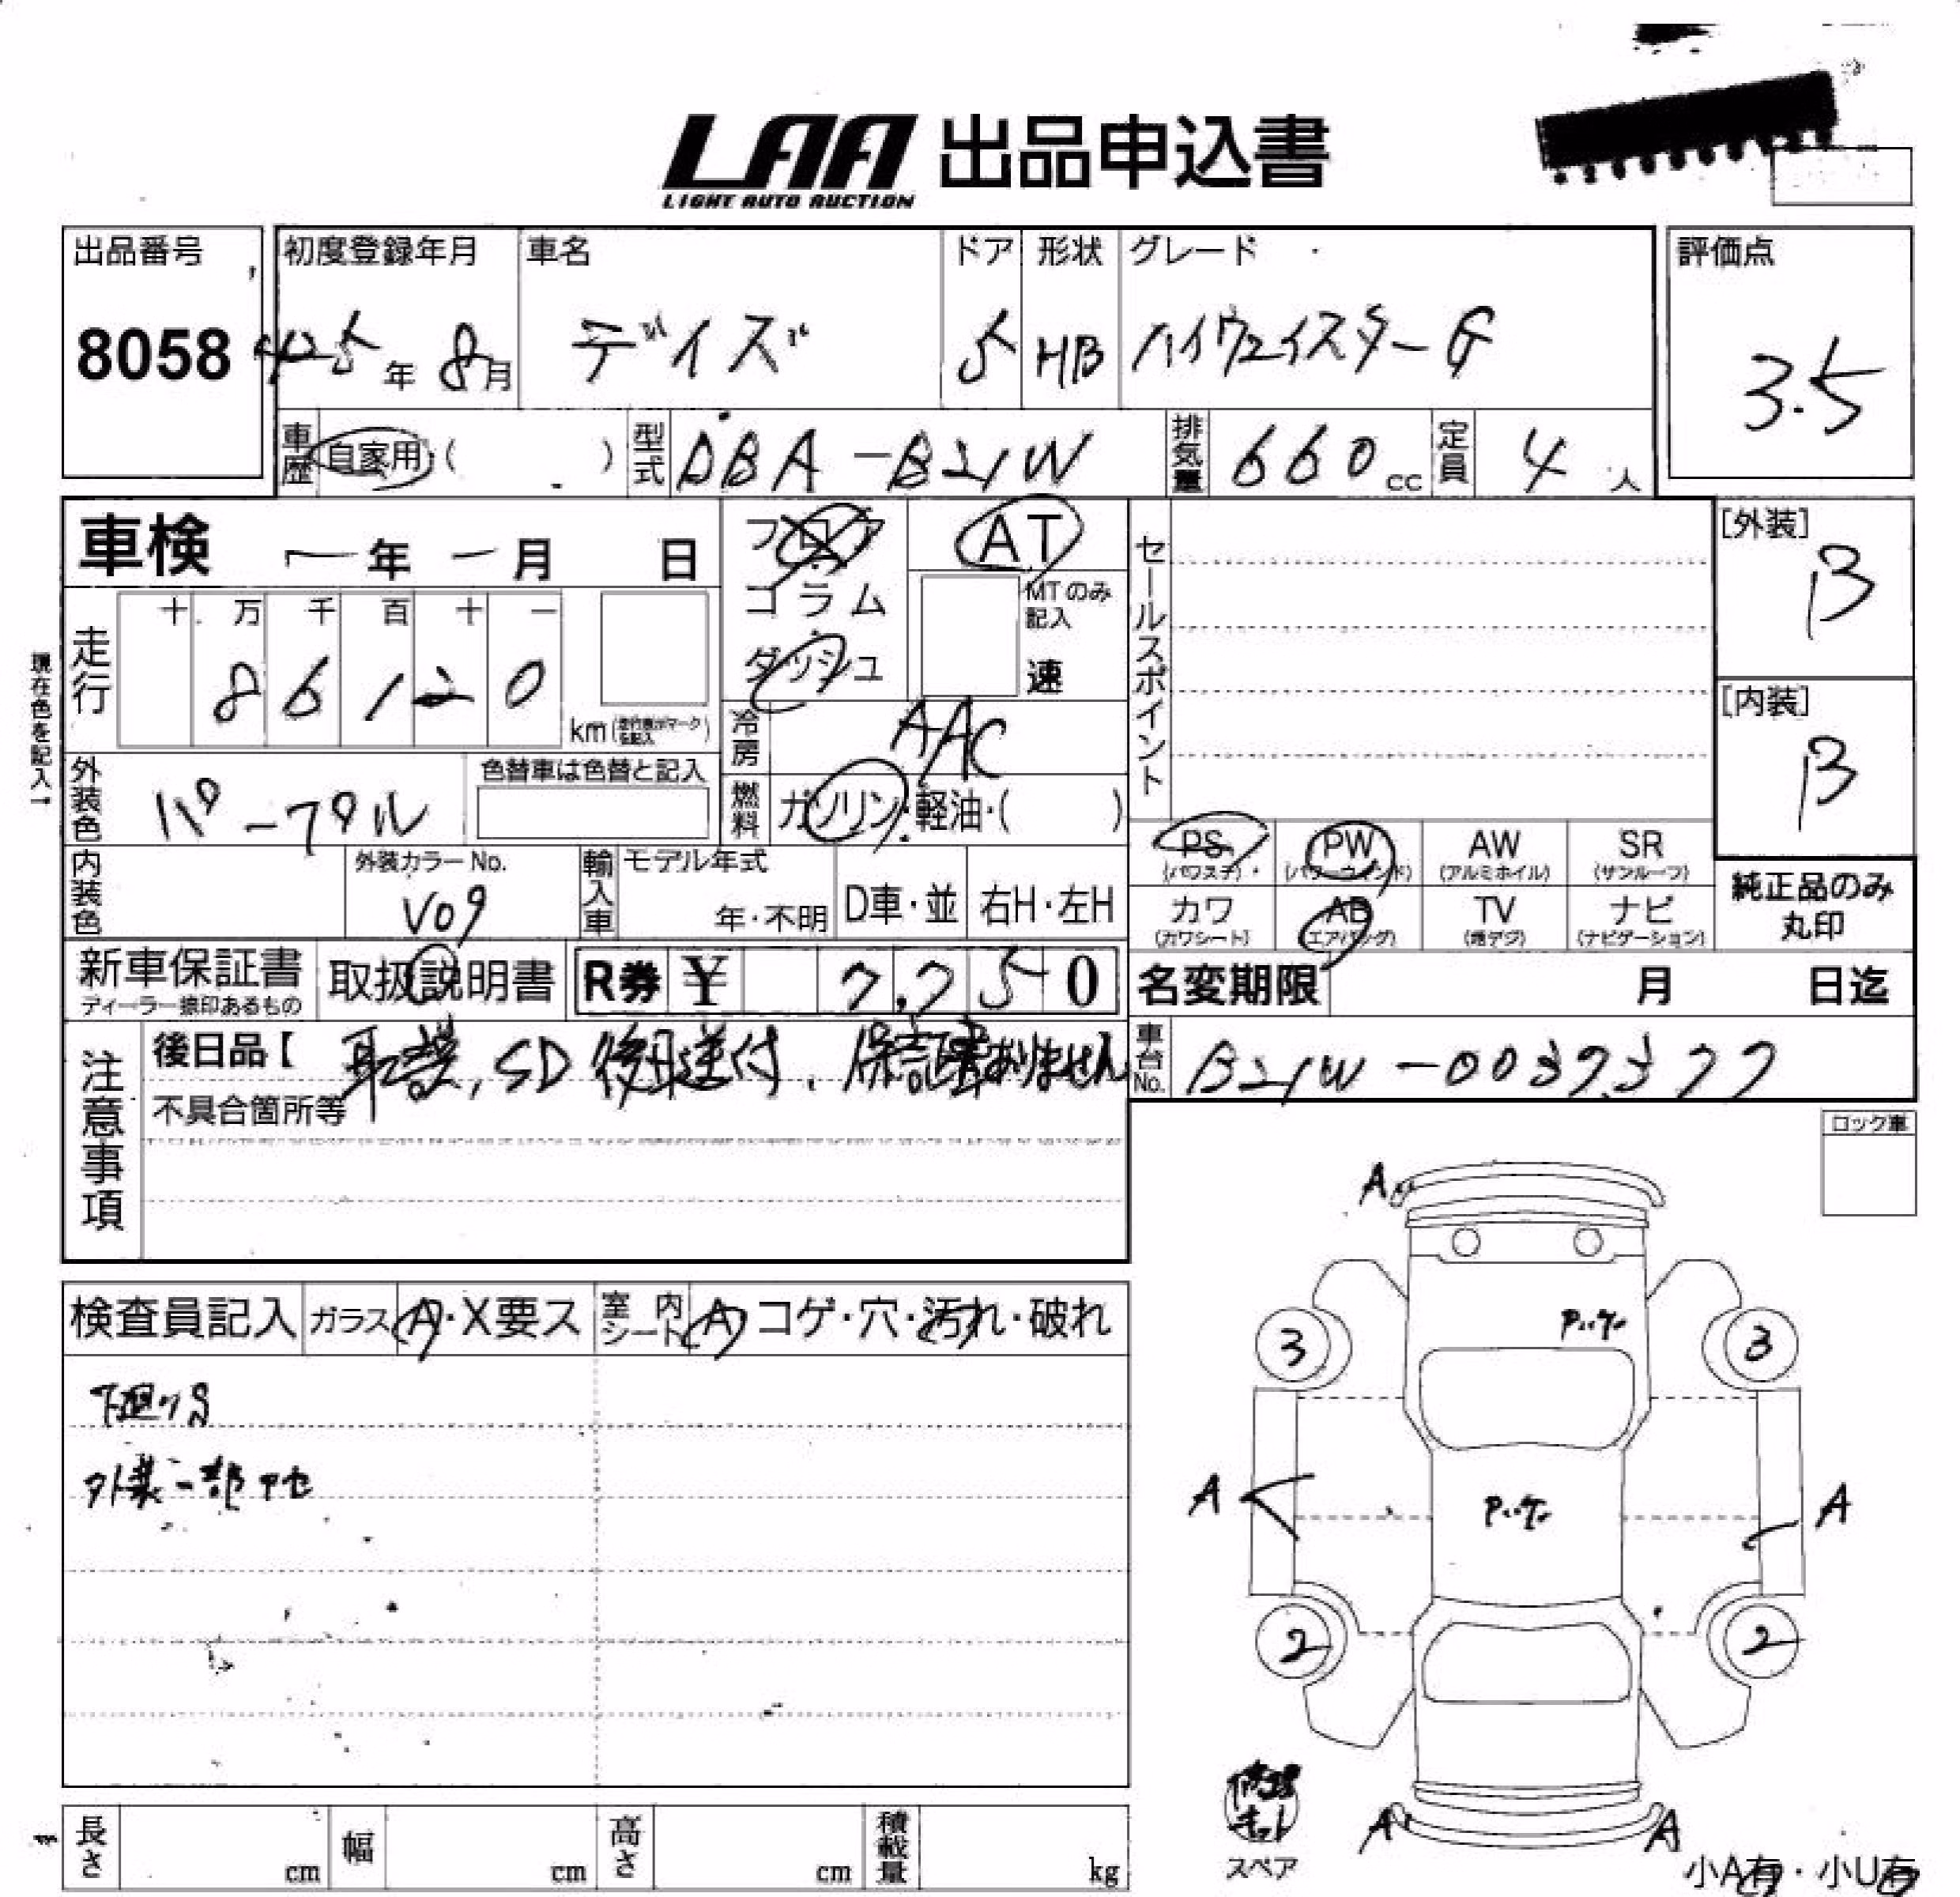 LAA 出品申込書
LIGHT AUTO AUCTION
出品番号 初度登録年月 車名 ドア 形状 グレード 評価点
8058 H25年 8月 デイズ 5 HB ハイウェイスターG 3.5
車歴 自家用・( ) 型式 DBA-B21W 排気量 660cc 定員 4人
車検 ー年 ー月 日 フロア AT セールスポイント [外装]
コラム MTのみ記入 B
ダッシュ 速
現在色を記入→
走行 十 万 千 百 十 一
8 6 1 2 0 km
[内装]
冷房 AAC B
外装色 パープル 色替車は色替と記入 燃料 ガソリン・軽油・( )
PS PW AW SR
(パワステ) (パワーウィンド) (アルミホイル) (サンルーフ)
内装色 外装カラーNo. 輸入車 モデル年式
V09 年・不明 D車・並 右H・左H
カワ AB TV ナビ 純正品のみ
(カワシート) (エアバッグ) (地デジ) (ナビゲーション) 丸印
新車保証書 取扱説明書 R券 ¥ 7,750 名変期限 月 日迄
ディーラー捺印あるもの
注意事項 後日品【 取説、SD 後日送付、保証書ありません 車台No. B21W-0037377
不具合箇所等
ロック車
A
検査員記入 ガラス A・X要ス 室内シート A コゲ・穴・汚れ・破れ
3 3
下廻りS
外装一部アセ
A A
2 2
修理キット
スペア
A A
長さ cm 幅 cm 高さ cm 積載量 kg
小A有・小U有